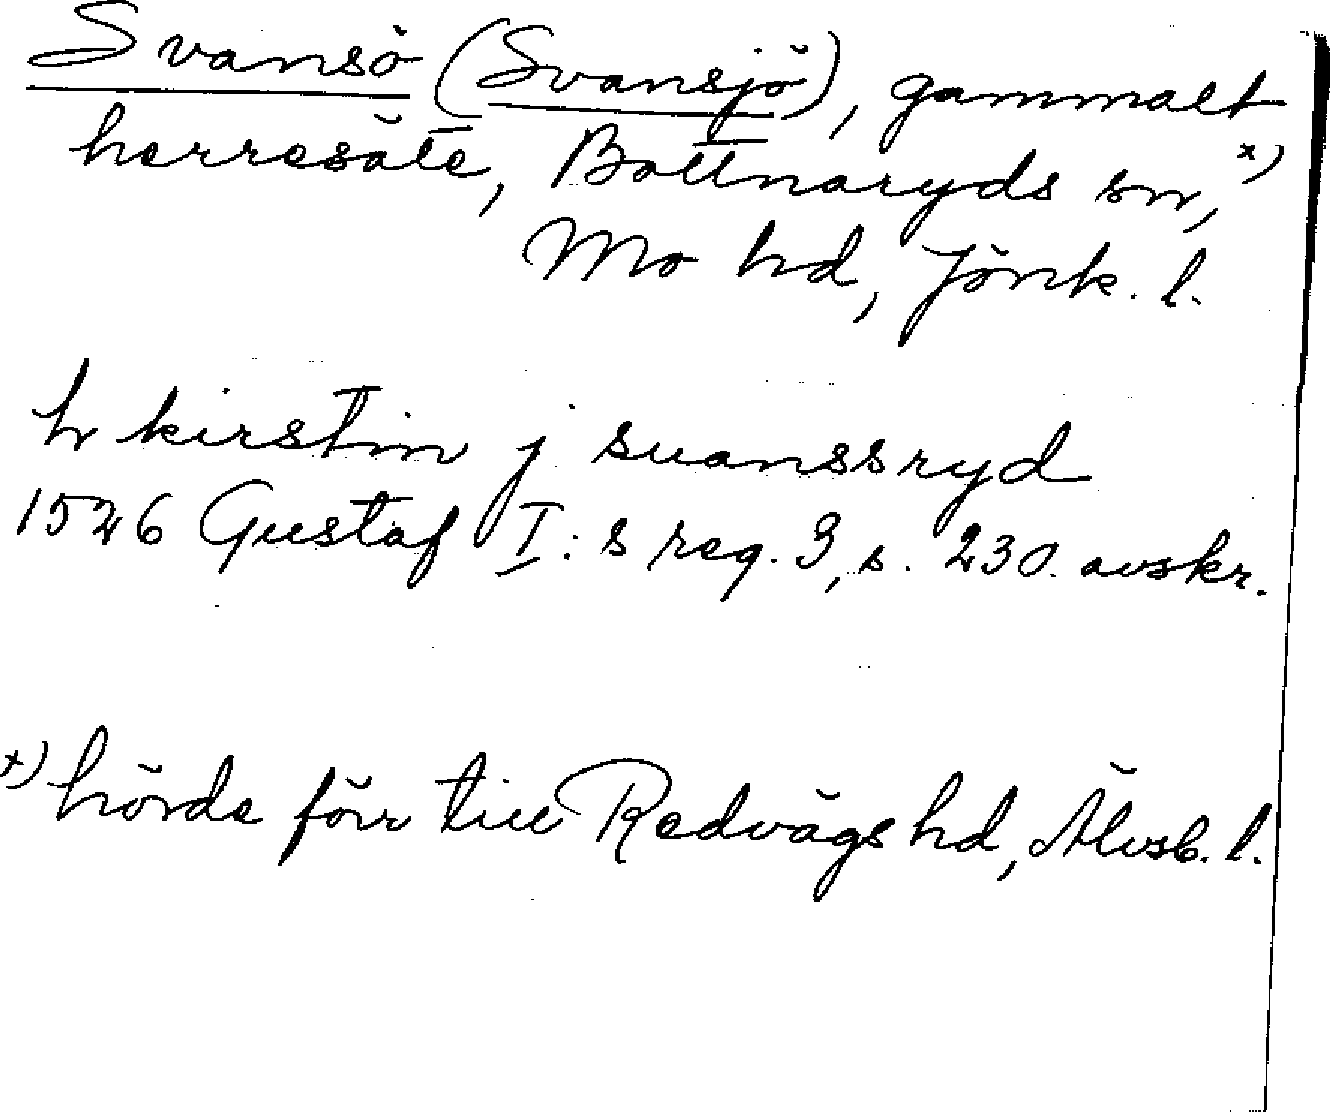 Svansö (Svansjö), gammalt
herresäte, Bottnaryds sn, x)
Mo hd, Jönk. l.
h kirstin j suanssryd
1526 Gustaf I:s reg. 3, s. 230. avskr.
x) hörde förr till Redvägs hd, Älvsb. l.